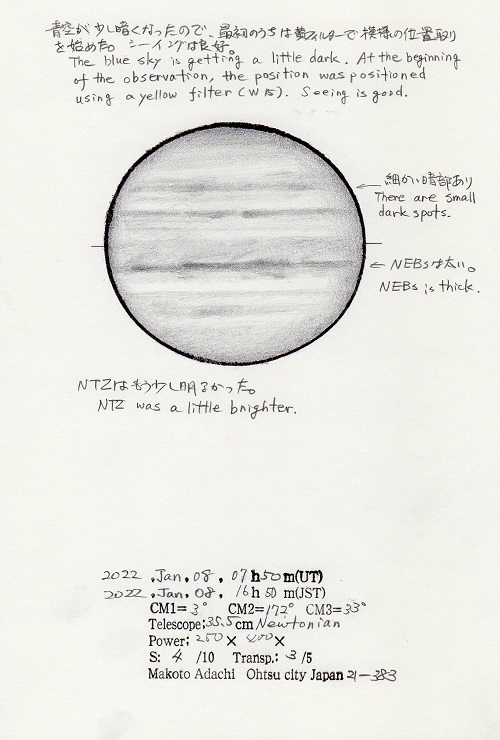 青空が少し暗くなったので、最初のうちは黄フィルターで模様の位置取り
を始めた。シーイングは良好。
The blue sky is getting a little dark. At the beginning
of the observation, the position was positioned
using a yellow filter (W15). Seeing is good.
細かい暗部あり
There are small
dark spots.
NEBsは太い。
NEBs is thick.
NTZはもう少し明るかった。
NTZ was a little brighter.
2022 .Jan. 08 . 07h50m(UT)
2022 .Jan. 08 . 16h50m(JST)
CM1= 3° CM2= 172° CM3= 33°
Telescope; 35.5cm Newtonian
Power; 250 × 400 ×
S: 4 /10 Transp.: 3 /5
Makoto Adachi Ohtsu city Japan 21-383